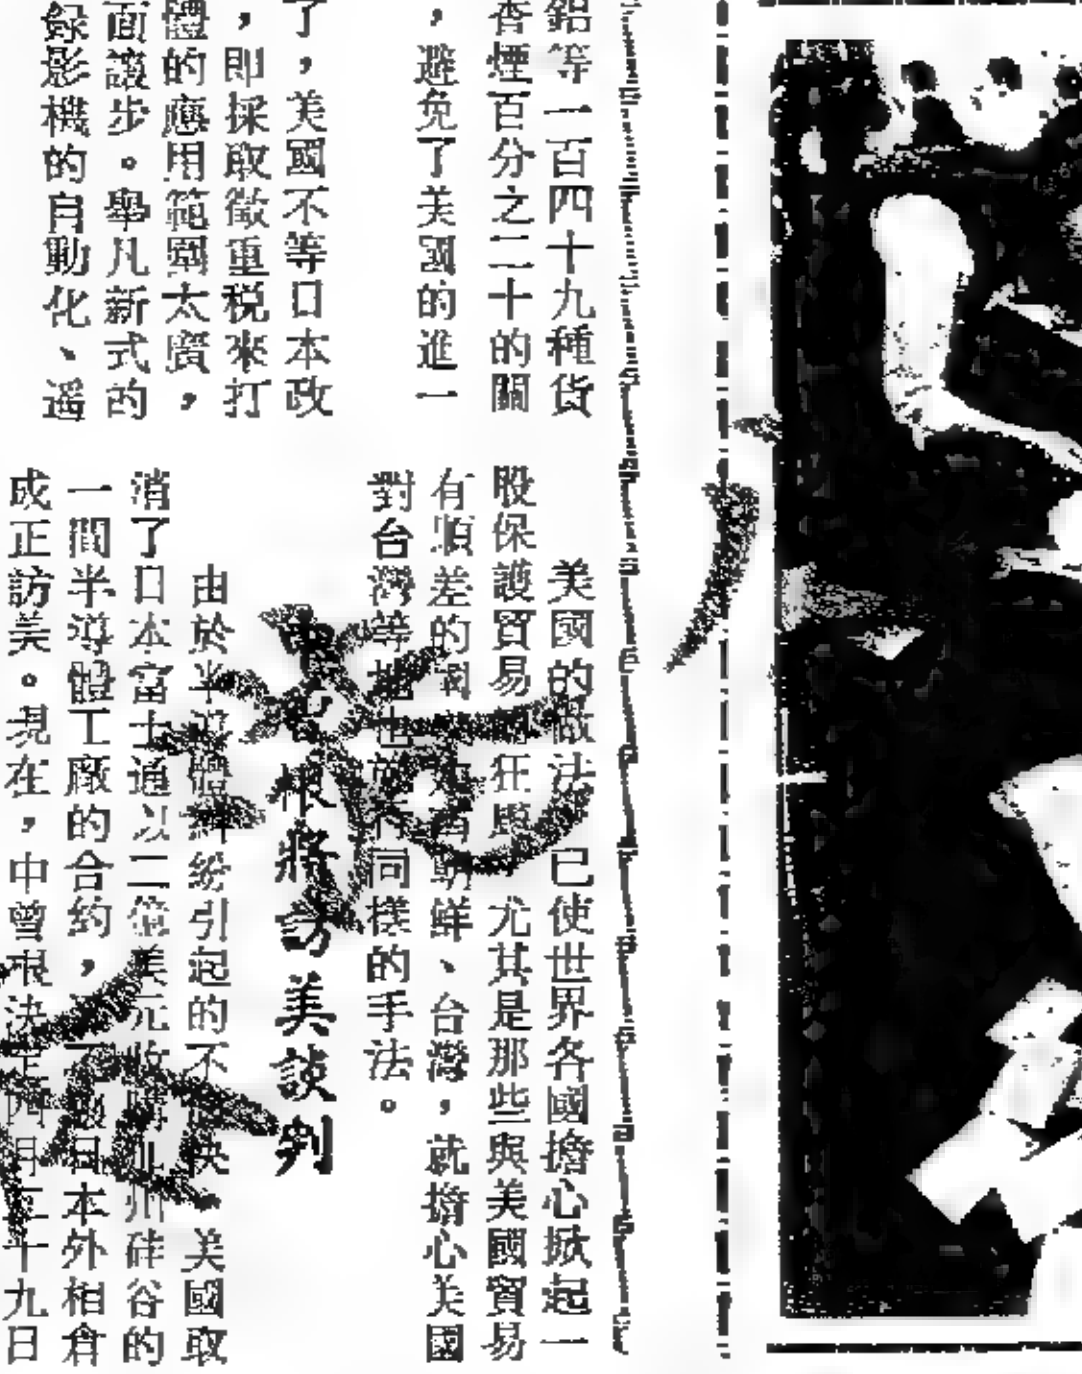 鋁等一百四十九種貨
香煙百分之二十的關
，避免了美國的進一
了，美國不等日本政
，即採取徵重税來打
體的應用範圍太廣，
面讓步。舉凡新式的
錄影機的自動化、遥
美國的做法 已使世界各國擔心掀起一
股保護貿易 狂 尤其是那些與美國貿易
有順差的 朝鮮、台灣，就擔心美國
對台灣等地也 同樣的手法。
中曾根將訪美談判
由於半導體糾紛引起的不 快 美國取
消了日本富士通以二億美元收購加州硅谷的
一間半導體工廠的合約， 日本外相倉
成正訪美。現在，中曾根決定四月二十九日